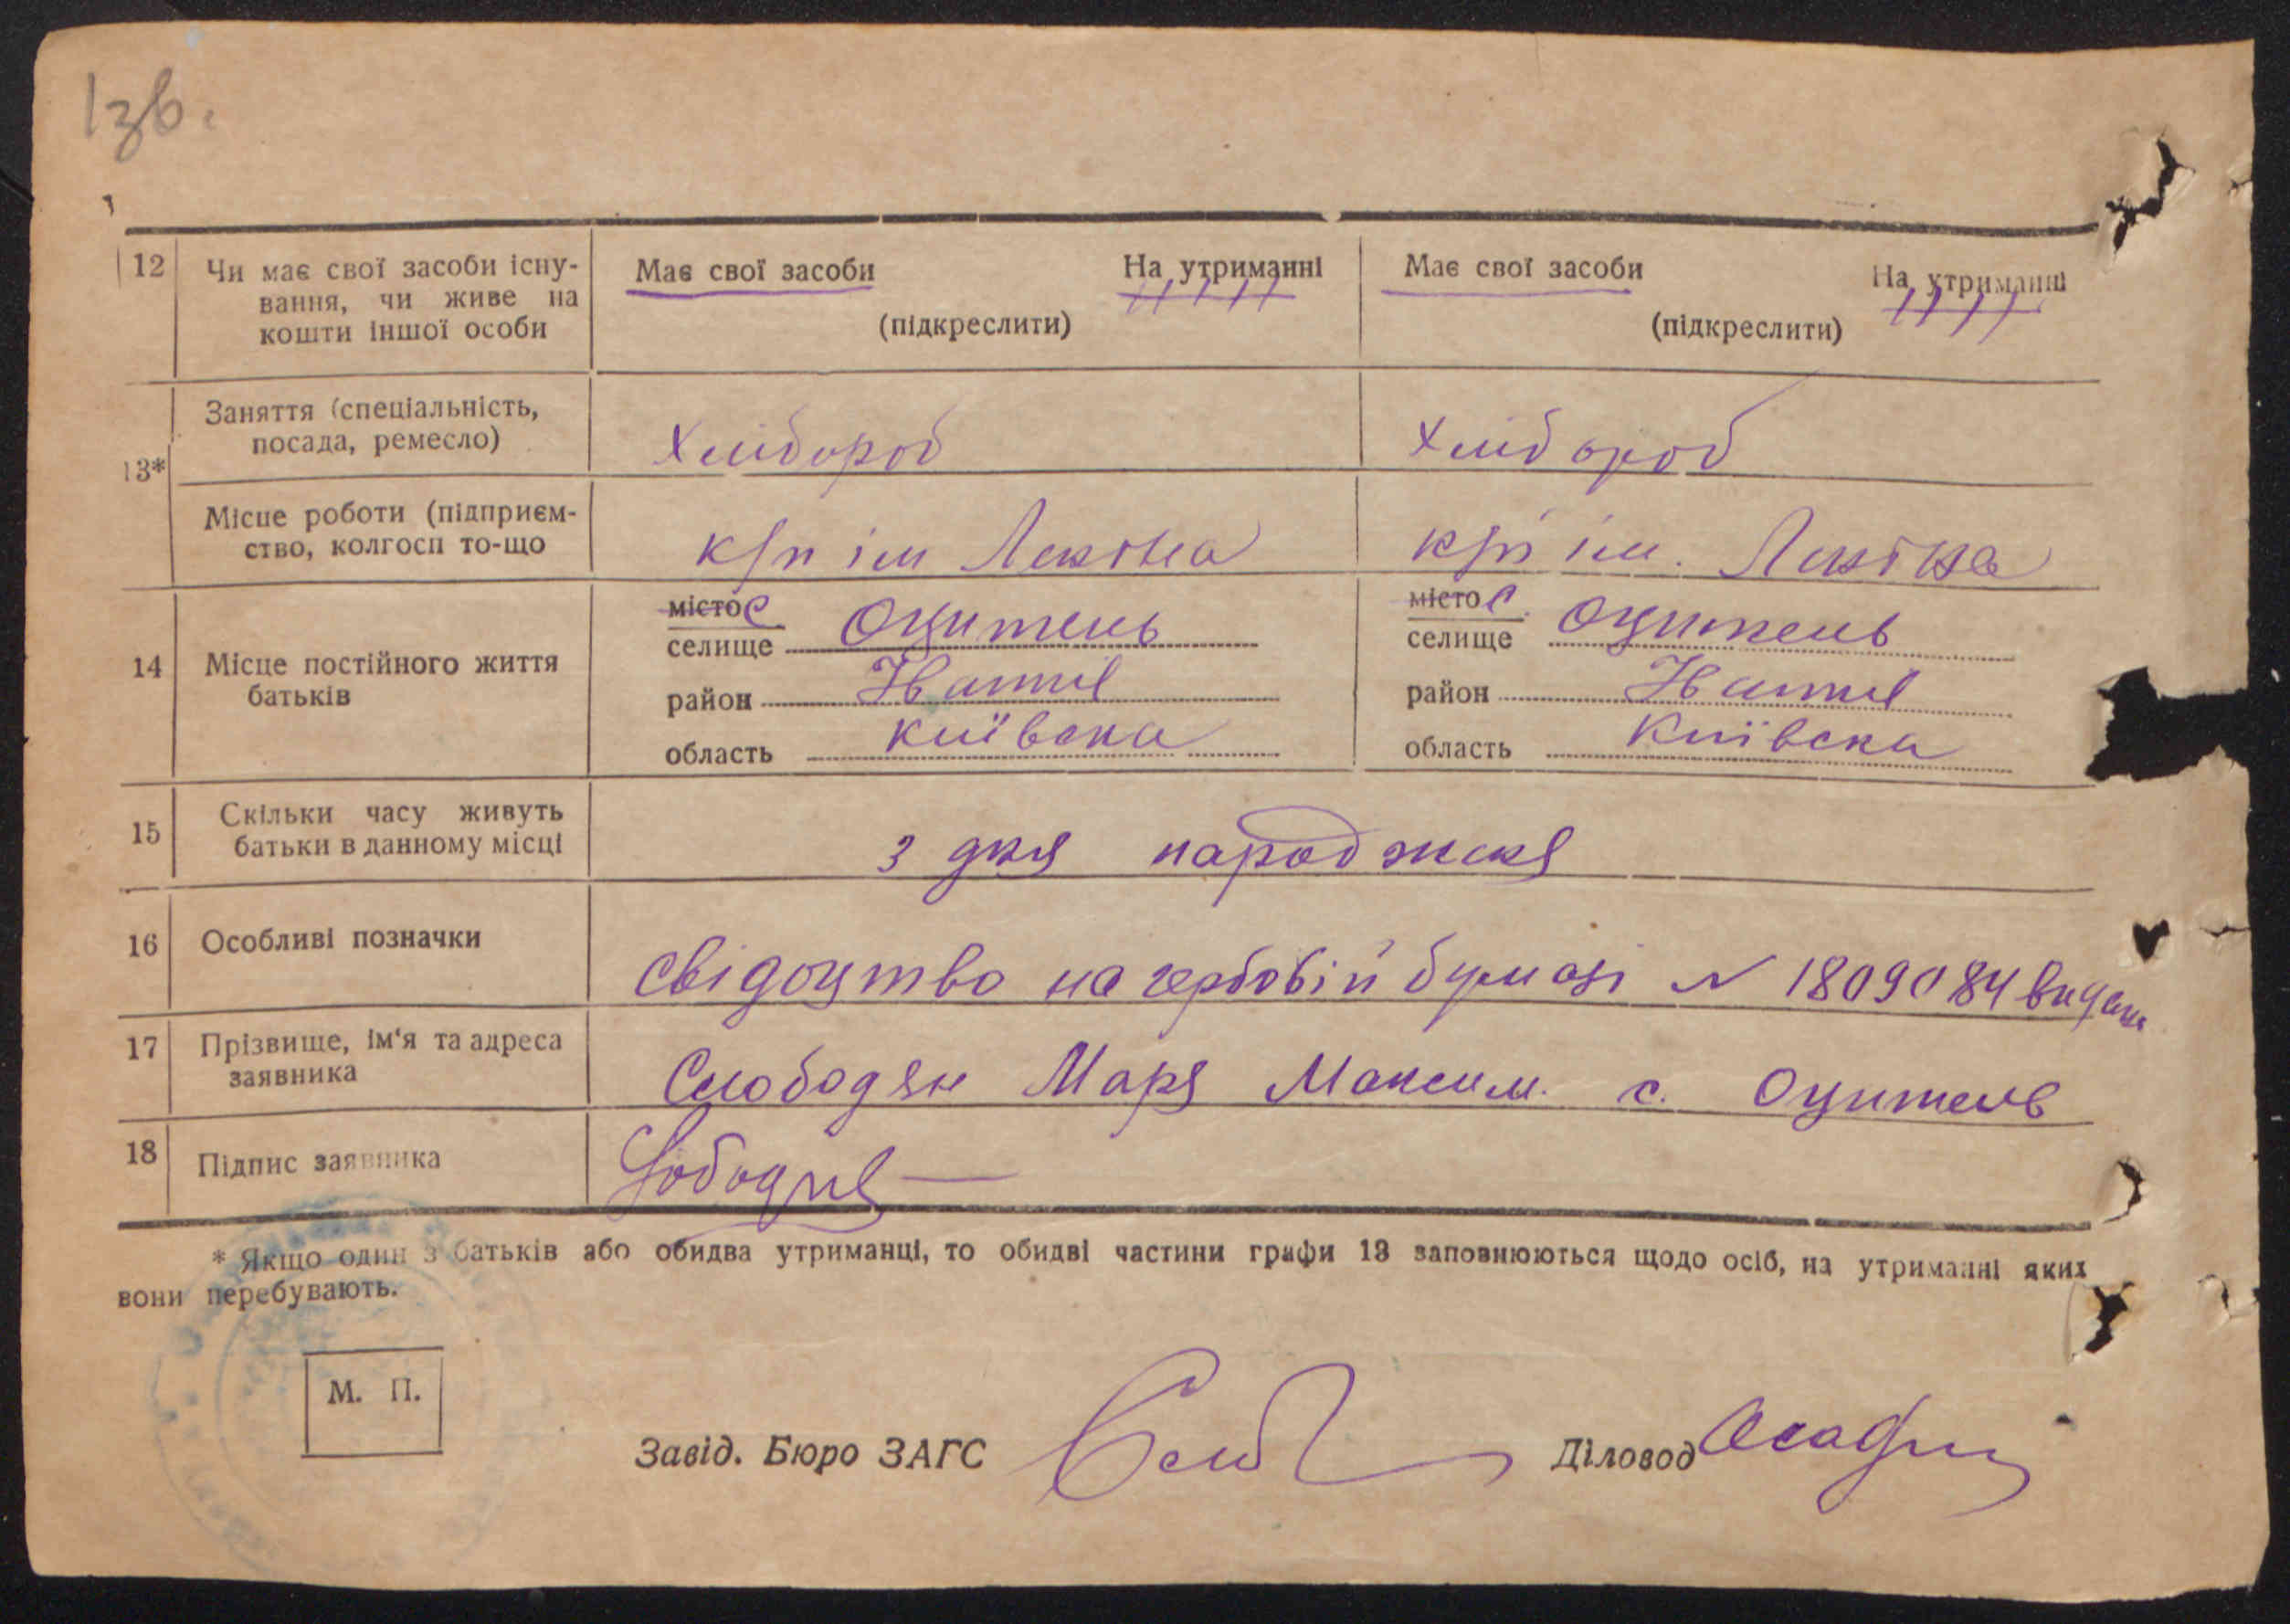 1зв.
12 Чи має свої засоби існу- Має свої засоби На утриманні Має свої засоби На утриманні
вання, чи живе на
кошти іншої особи (підкреслити) (підкреслити)
Заняття (спеціальність,
посада, ремесло) Хлібороб Хлібороб
13*
Місце роботи (підприєм-
ство, колгосп то-що к/п ім Леніна к/п ім. Леніна
місто с місто с.
селище Оцитель селище Оцитель
14 Місце постійного життя
батьків район район
область київська область Київска
15 Скільки часу живуть
батьки в данному місці з дня народженя
16 Особливі позначки
свідоцтво на гербовій бумазі № 1809084 видано
17 Прізвище, ім'я та адреса
заявника Слободян Маря Максим. с. Оцитель
18 Підпис заявника
* Якщо один з батьків або обидва утриманці, то обидві частини графи 13 заповнюються щодо осіб, на утриманні яких
вони перебувають.
М. П.
Завід. Бюро ЗАГС Діловод